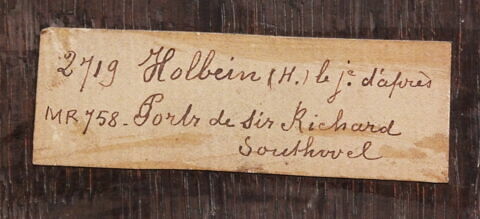 2719 Holbein (H.) le je d'après
MR 758. Portr de sir Richard
Southovel